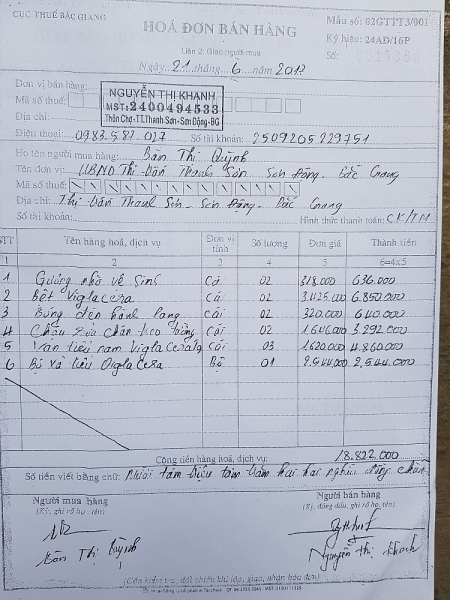 CỤC THUẾ BẮC GIANG
HOÁ ĐƠN BÁN HÀNG
Mẫu số: 02GTTT3/001
Ký hiệu: 24AD/16P
Liên 2: Giao người mua
Số:
Ngày 21 tháng 6 năm 2017
Đơn vị bán hàng:
NGUYỄN THỊ KHANH
Mã số thuế:
MST: 2400494533
Địa chỉ:
Thôn Chợ-TT.Thanh Sơn-Sơn Động-BG
Điện thoại: 0983.581.027 Số tài khoản: 2509205229751
Họ tên người mua hàng: Bàn Thị Quỳnh
Tên đơn vị: UBND Thị trấn Thanh Sơn Sơn Động - Bắc Giang
Mã số thuế:
Địa chỉ: Thị trấn Thanh Sơn - Sơn Động - Bắc Giang
Số tài khoản: Hình thức thanh toán: CK/TM
STT Tên hàng hoá, dịch vụ Đơn vị tính Số lượng Đơn giá Thành tiền
1 2 3 4 5 6=4x5
1 Gương nhà vệ sinh Cái 02 318.000 636.000
2 Bệt Viglacera Cái 02 3.425.000 6.850.000
3 Bóng đèn hành lang Cái 02 320.000 640.000
4 Chậu rửa chân treo tường Cái 02 1.646.000 3.292.000
5 Van tiểu nam Viglacera Cái 03 1.620.000 4.860.000
6 Bộ xả tiểu Viglacera Bộ 01 2.544.000 2.544.000
Cộng tiền hàng hoá, dịch vụ: 18.822.000
Số tiền viết bằng chữ: Mười tám triệu tám trăm hai hai nghìn đồng chẵn
Người mua hàng
(Ký, ghi rõ họ, tên)
Người bán hàng
(Ký, đóng dấu, ghi rõ họ, tên)
Bàn Thị Quỳnh
Nguyễn Thị Khanh
(Cần kiểm tra, đối chiếu khi lập, giao, nhận hóa đơn)